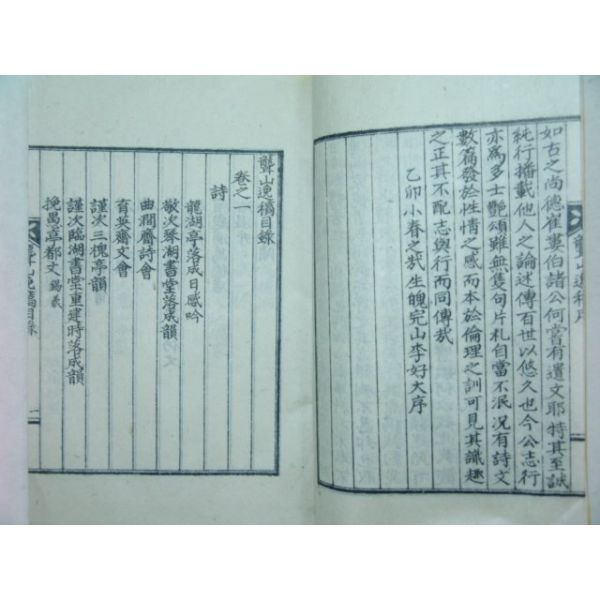 如古之尚德崔婁伯諸公何嘗有遺文耶特其至誠
純行播載他人之論述傳百世以悠久也今公志行
亦為多士艶頌雖無隻句片札自當不泯況有詩文
數篇發於性情之感而本於倫理之訓可見其識趣
之正其不配志與行而同傳哉
乙卯小春之哉生魄完山李好大序
聾山逸稿目錄
卷之一
詩
龍湖亭落成日感吟
敬次琴湖書堂落成韻
曲澗齋詩會
育英齋文會
謹次三槐亭韻
謹次臨湖書堂重建時落成韻
挽禺亭都文錫羲
聾山逸稿目錄
一